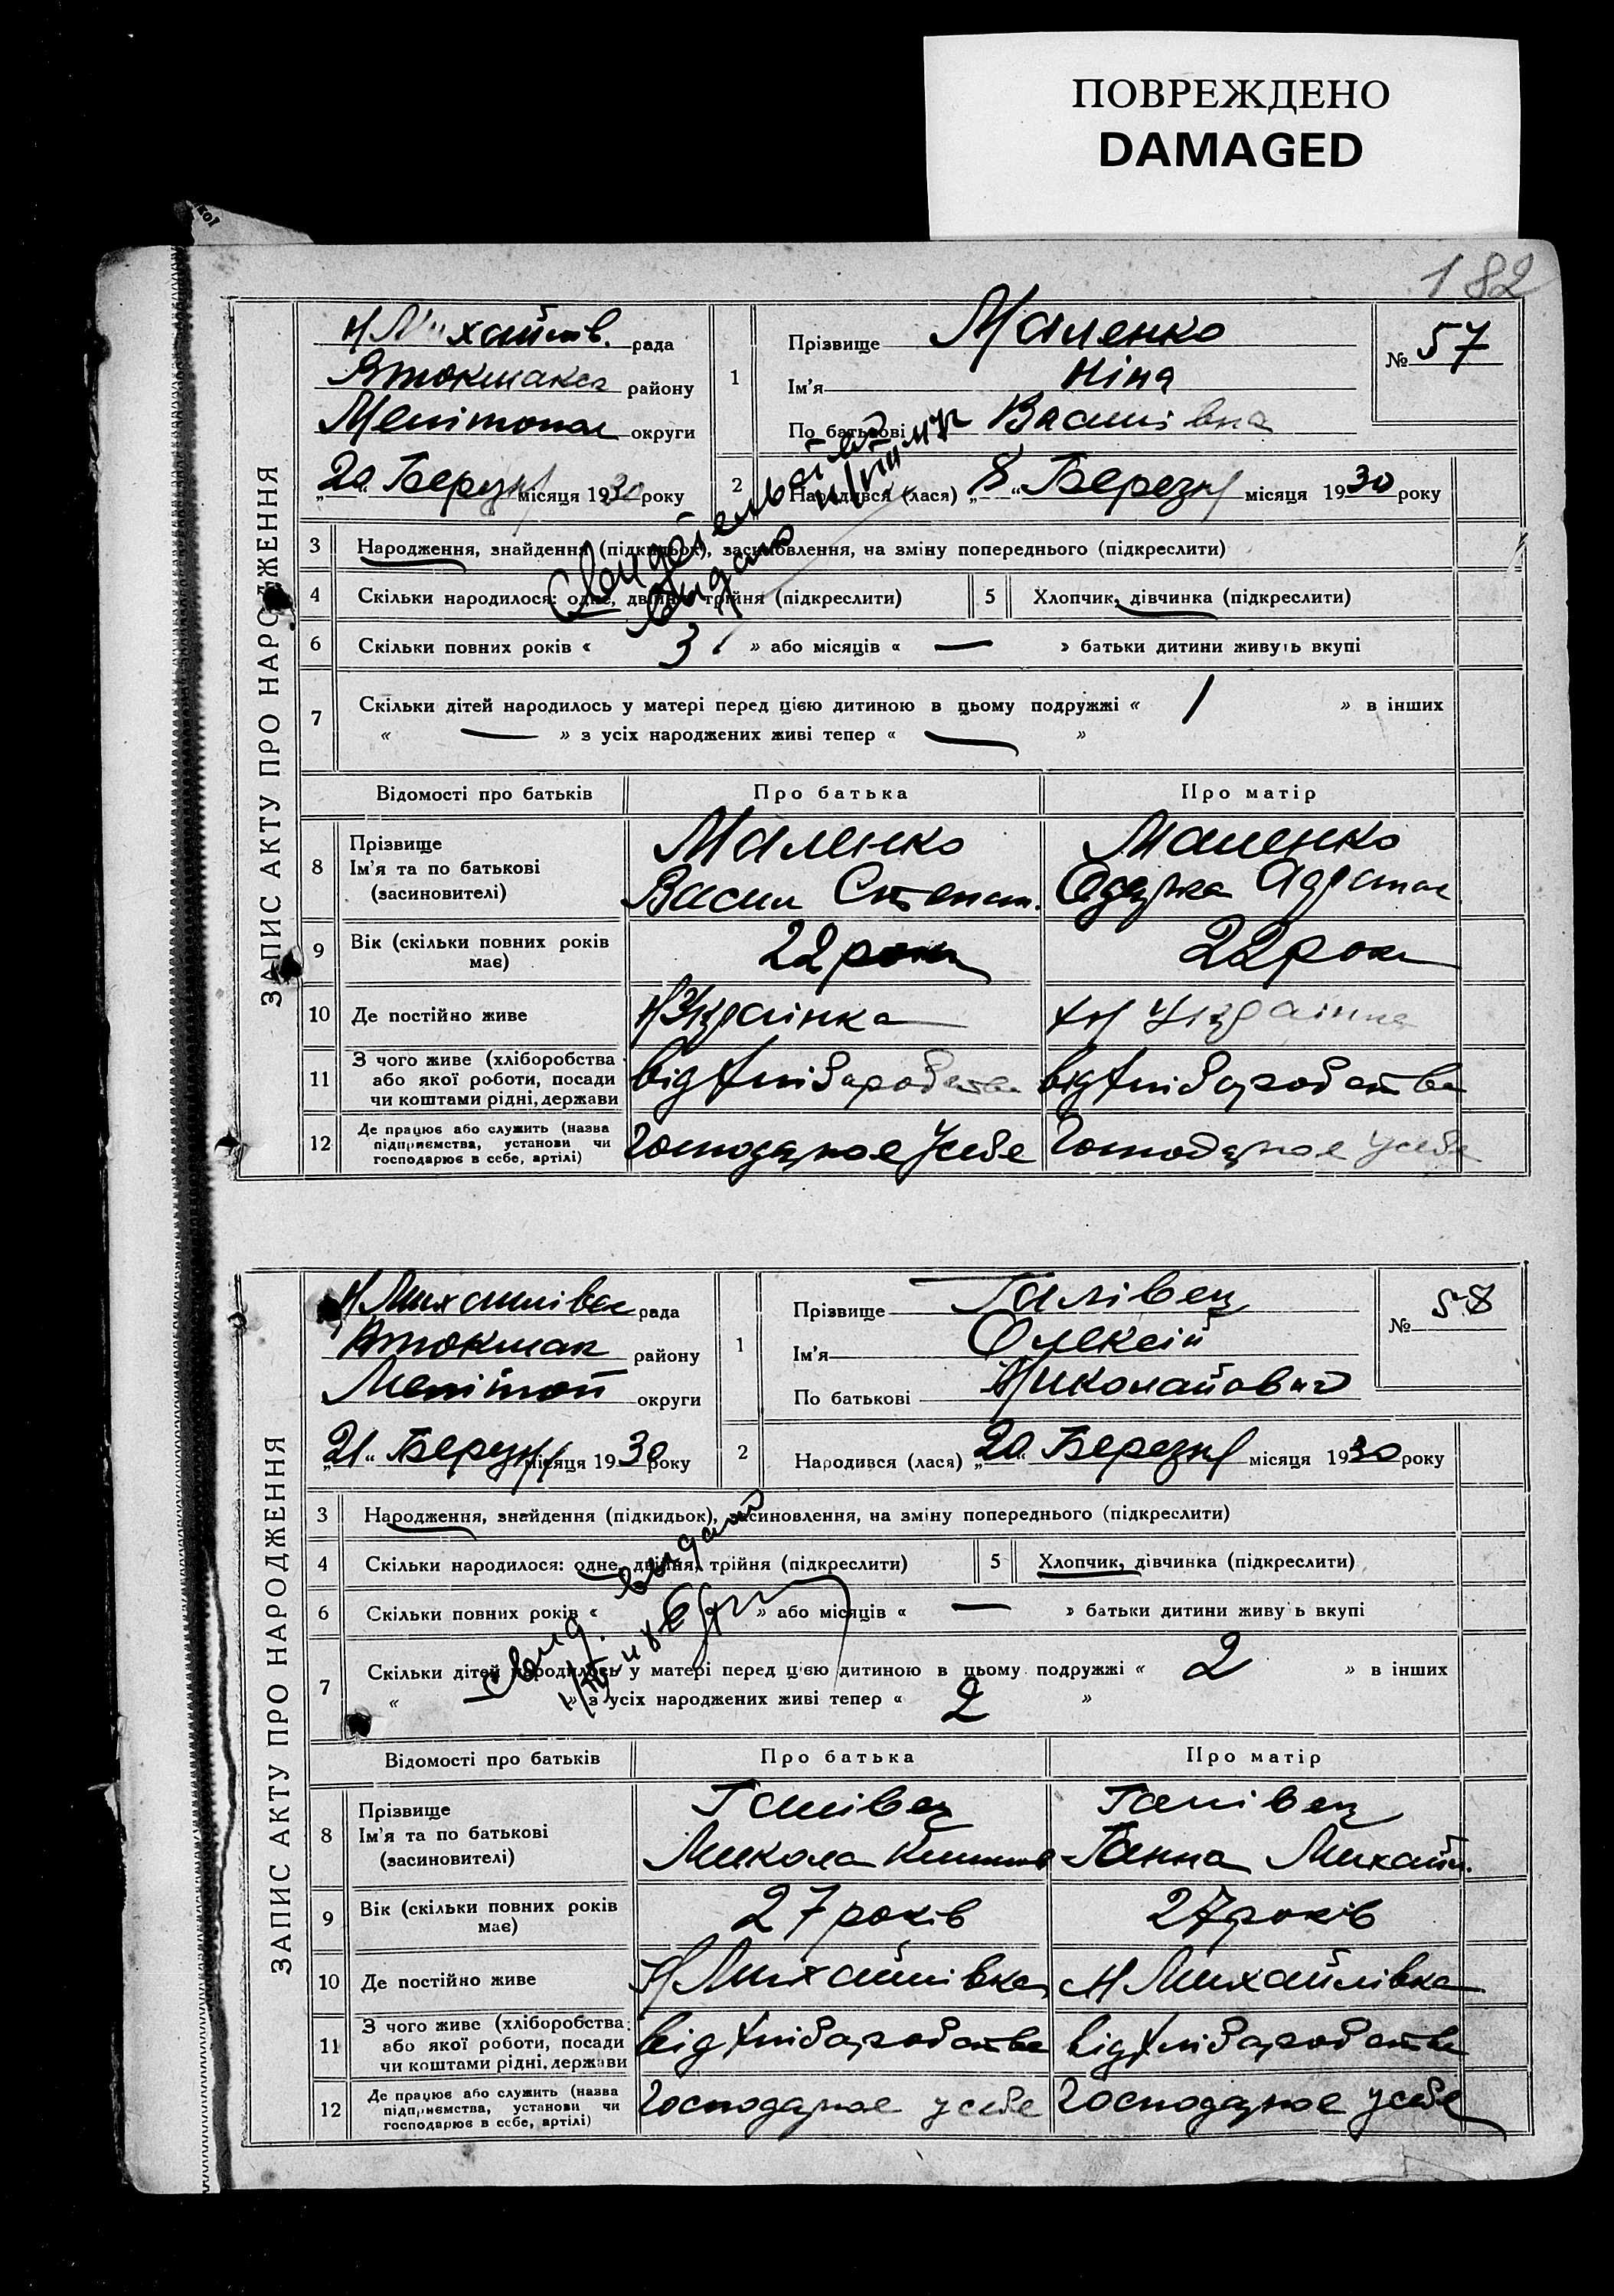 ПОВРЕЖДЕНО
DAMAGED
182
ЗАПИС АКТУ ПРО НАРОДЖЕННЯ
рада
району
округи
„20“ Березня місяця 1930 року
1
Прізвище Маленко
Ім'я Ніна
По батькові Василівна
№ 57
2
Народився (лася) „8“ Березня місяця 1930 року
3 Народження, знайдення (підкидьок), засиновлення, на зміну попереднього (підкреслити)
4 Скільки народилося: одне, двійня, трійня (підкреслити)
5 Хлопчик, дівчинка (підкреслити)
6 Скільки повних років « 3 » або місяців « — » батьки дитини живуть вкупі
7 Скільки дітей народилось у матері перед цією дитиною в цьому подружжі « 1 » в інших
« — » з усіх народжених живі тепер « — »
Відомості про батьків Про батька Про матір
8 Прізвище
Ім'я та по батькові
(засиновителі)
Маленко
Васил Степан.
Маленко
9 Вік (скільки повних років
має)
22 роки
22 роки
10 Де постійно живе
Н Українка
Н Українка
11 З чого живе (хліборобства
або якої роботи, посади
чи коштами рідні, держави
від хліборобства
від хліборобства
12 Де працює або служить (назва
підприємства, установи чи
господарює в себе, артілі)
Господарює у себе
Господарює у себе
видано
ЗАПИС АКТУ ПРО НАРОДЖЕННЯ
Н Михайлівка рада
Втокмак району
Мелітоп округи
„21“ Березня місяця 1930 року
1
Прізвище Галівец
Ім'я Олексій
По батькові Миколайович
№ 58
2
Народився (лася) „20“ Березня місяця 1930 року
3 Народження, знайдення (підкидьок), засиновлення, на зміну попереднього (підкреслити)
4 Скільки народилося: одне, двійня, трійня (підкреслити)
5 Хлопчик, дівчинка (підкреслити)
6 Скільки повних років « » або місяців « — » батьки дитини живуть вкупі
7 Скільки дітей народилось у матері перед цією дитиною в цьому подружжі « 2 » в інших
« — » з усіх народжених живі тепер « 2 »
свид. видан
Відомості про батьків Про батька Про матір
8 Прізвище
Ім'я та по батькові
(засиновителі)
Галівец
Микола
Галівец
Ганна Михайл.
9 Вік (скільки повних років
має)
27 років
27 років
10 Де постійно живе
Н Михайлівка
Н Михайлівка
11 З чого живе (хліборобства
або якої роботи, посади
чи коштами рідні, держави
від хліборобства
від хліборобства
12 Де працює або служить (назва
підприємства, установи чи
господарює в себе, артілі)
Господарює у себе
Господарює у себе